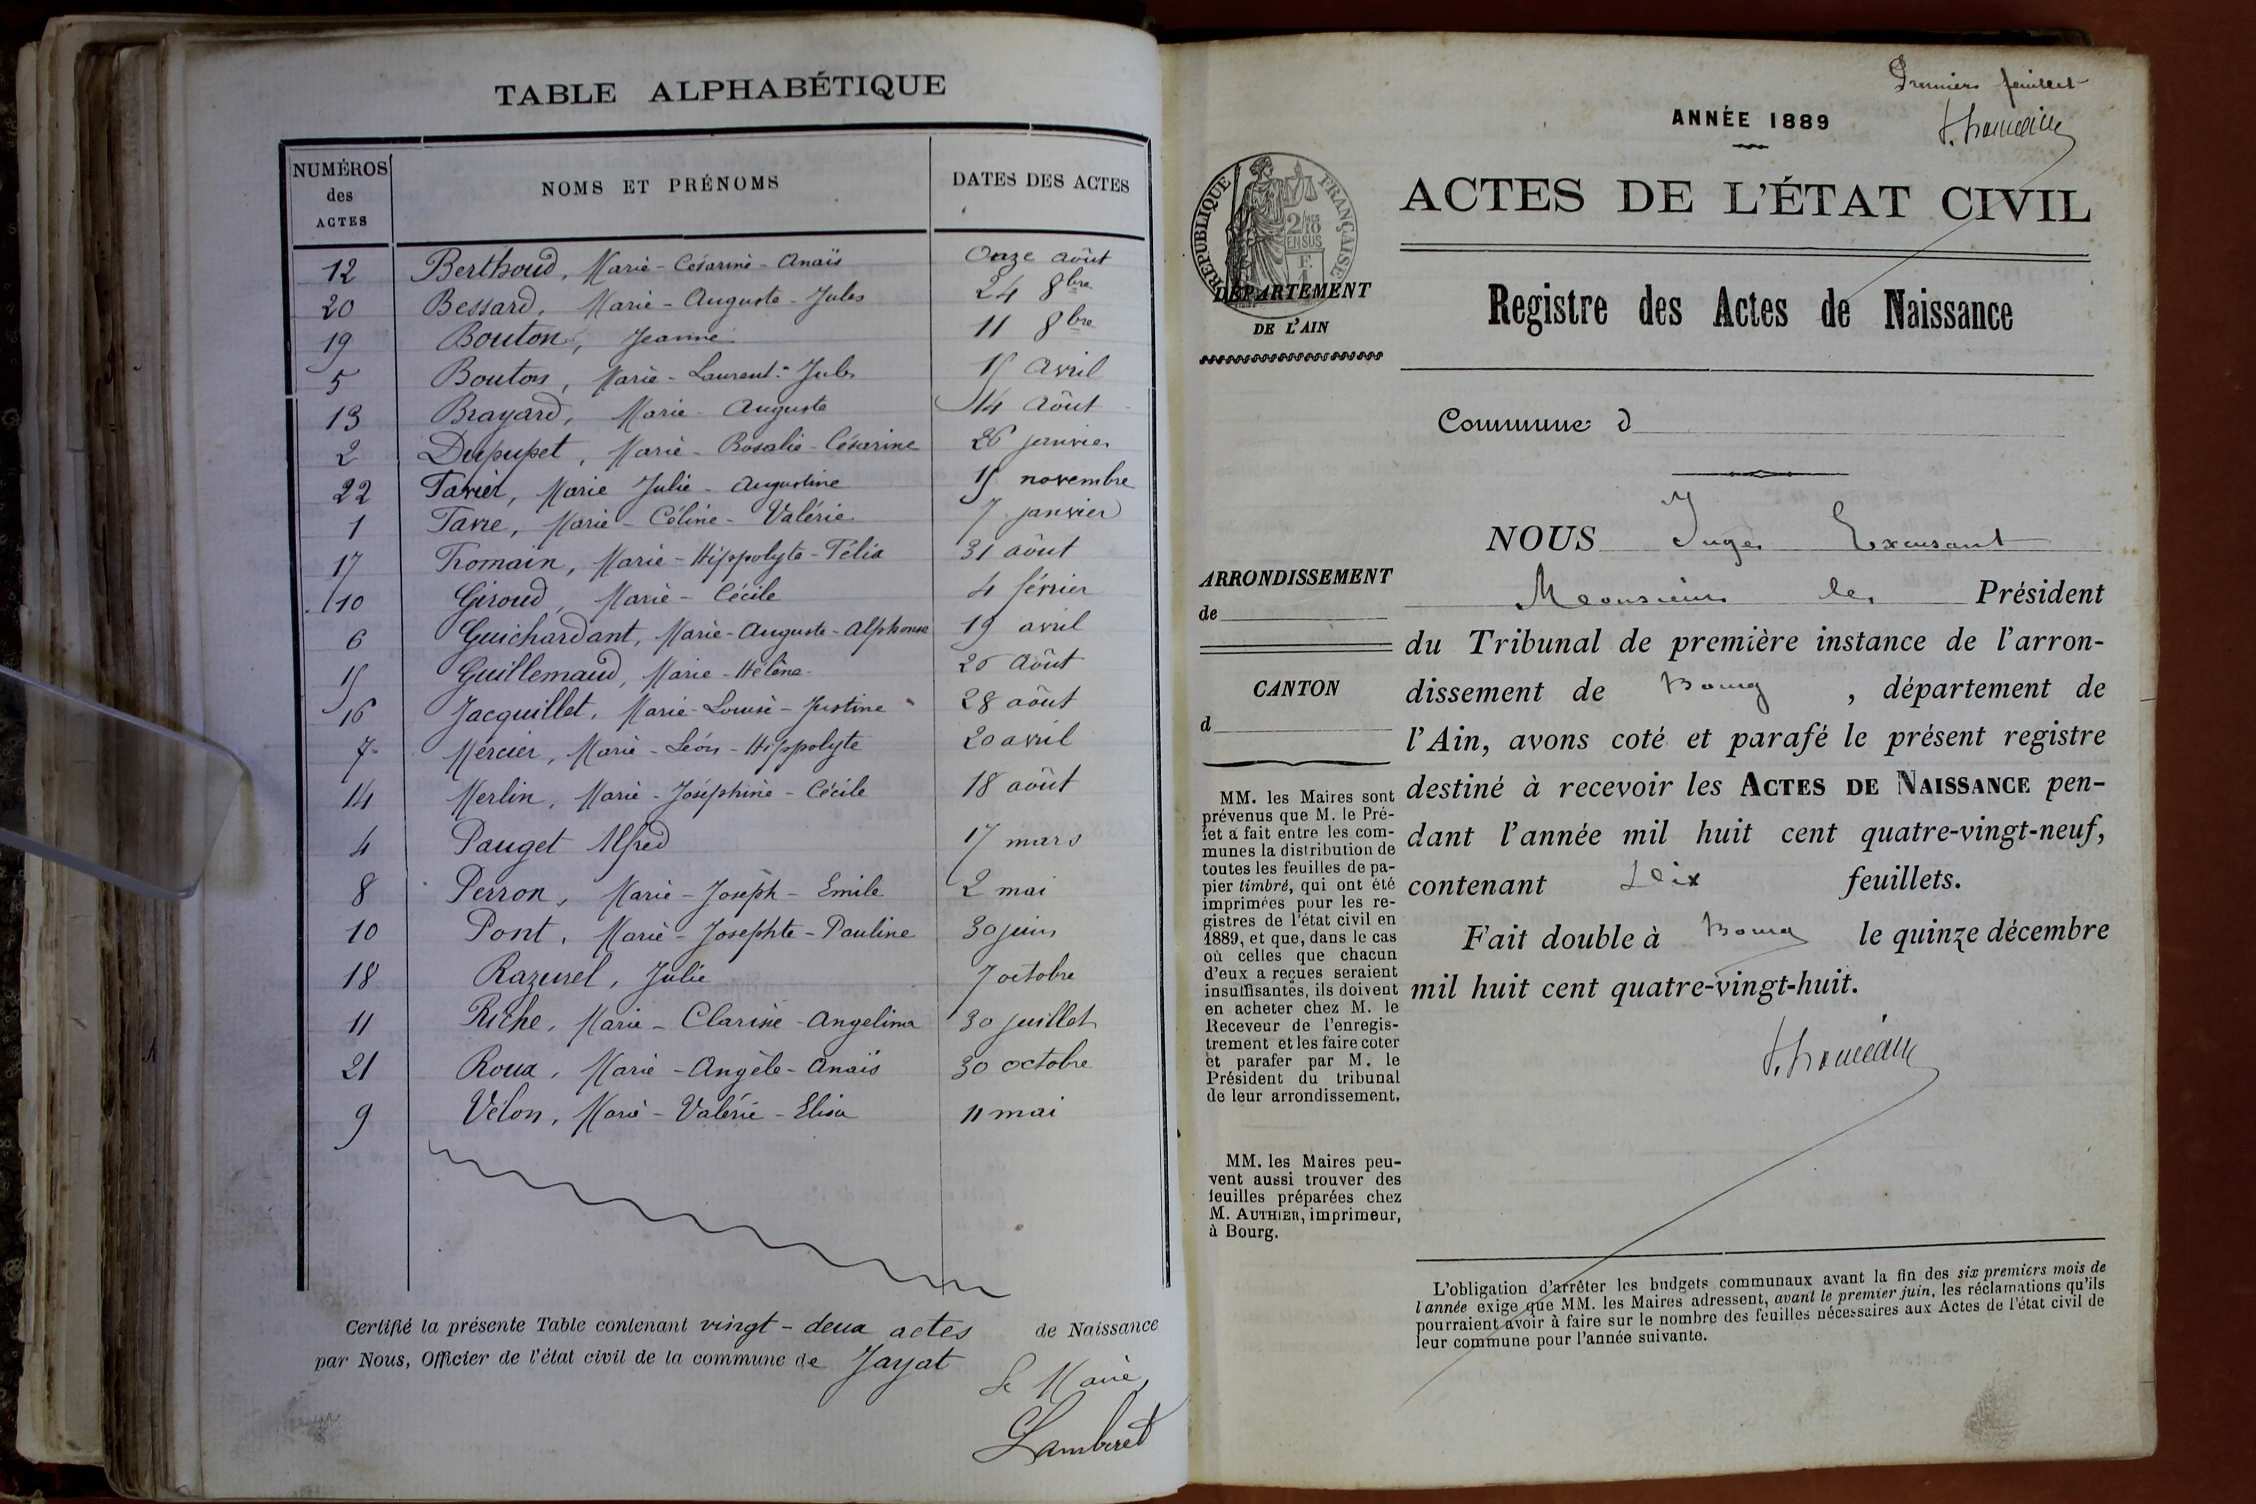 TABLE ALPHABÉTIQUE
NUMÉROS des ACTES
NOMS ET PRÉNOMS
DATES DES ACTES
12 Berthoud, Marie-Césarine-Anaïs Onze août
20 Bessard, Marie-Auguste-Jules 24 8bre
19 Bouton, Jeanne 11 8bre
5 Bouton, Marie-Laurent-Jules 15 Avril
13 Brayard, Marie-Auguste 14 Août
2 Dupupet, Marie-Rosalie-Césarine 26 janvier
22 Favier, Marie Julie-Augustine 15 novembre
1 Favre, Marie-Céline-Valérie 7 janvier
17 Fromain, Marie-Hippolyte-Félix 31 août
10 Giroud, Marie-Cécile 4 février
6 Guichardant, Marie-Auguste-Alphonse 19 avril
15 Guillemaud, Marie-Hélène 26 Août
16 Jacquillet, Marie-Louise-Justine 28 août
7 Mercier, Marie-Léon-Hippolyte 20 avril
14 Merlin, Marie-Joséphine-Cécile 18 août
4 Pauget Alfred 17 mars
8 Perron, Marie-Joseph-Emile 2 mai
10 Pont, Marie-Josephte-Pauline 30 juin
18 Razurel, Julie 7 octobre
11 Riche, Marie-Clarisse-Angelina 30 juillet
21 Roux, Marie-Angèle-Anaïs 30 octobre
9 Vélon, Marie-Valérie-Elisa 11 mai
Certifié la présente Table contenant vingt-deux actes de Naissance
par Nous, Officier de l'état civil de la commune de Jayat
Le Maire,
Lamberet
Premier feuillet
ANNÉE 1889
RÉPUBLIQUE FRANÇAISE
2/10 EN SUS
ACTES DE L'ÉTAT CIVIL
DÉPARTEMENT
DE L'AIN
Registre des Actes de Naissance
Commune d
NOUS Juge Excusant
Monsieur le Président
du Tribunal de première instance de l'arron-
dissement de Bourg, département de
l'Ain, avons coté et parafé le présent registre
destiné à recevoir les ACTES DE NAISSANCE pen-
dant l'année mil huit cent quatre-vingt-neuf,
contenant Dix feuillets.
Fait double à Bourg le quinze décembre
mil huit cent quatre-vingt-huit.
ARRONDISSEMENT
de
CANTON
d
MM. les Maires sont
prévenus que M. le Pré-
fet a fait entre les com-
munes la distribution de
toutes les feuilles de pa-
pier timbré, qui ont été
imprimées pour les re-
gistres de l'état civil en
1889, et que, dans le cas
où celles que chacun
d'eux a reçues seraient
insuffisantes, ils doivent
en acheter chez M. le
Receveur de l'enregis-
trement et les faire coter
et parafer par M. le
Président du tribunal
de leur arrondissement.
MM. les Maires peu-
vent aussi trouver des
feuilles préparées chez
M. AUTHIER, imprimeur,
à Bourg.
L'obligation d'arrêter les budgets communaux avant la fin des six premiers mois de
l'année exige que MM. les Maires adressent, avant le premier juin, les réclamations qu'ils
pourraient avoir à faire sur le nombre des feuilles nécessaires aux Actes de l'état civil de
leur commune pour l'année suivante.